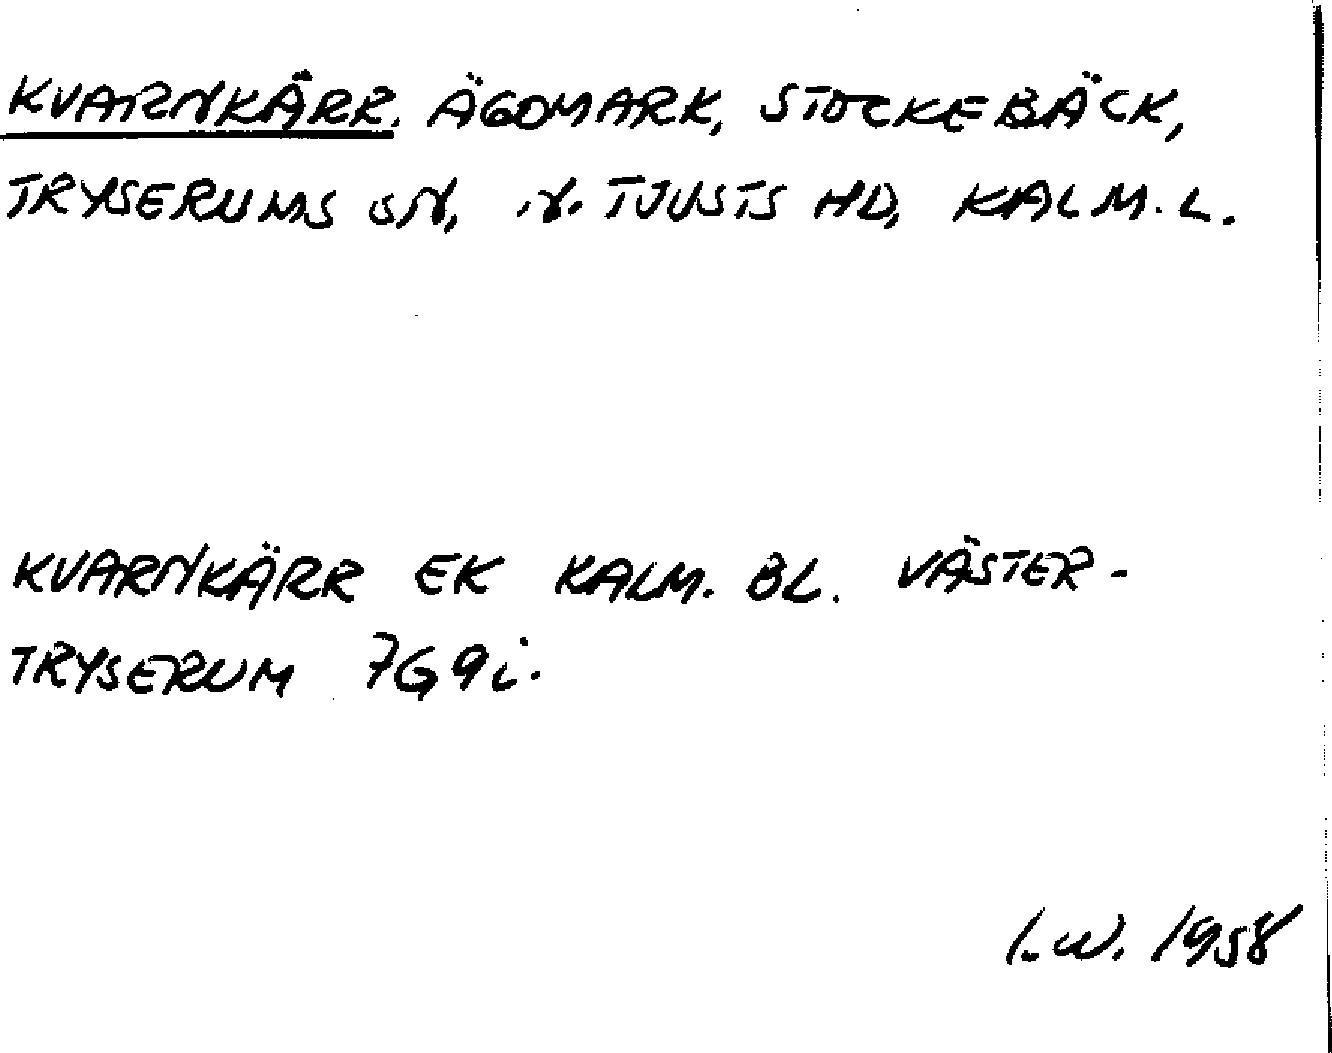 KVARNKÄRR. ÄGOMARK, STOCKEBÄCK,
TRYSERUMS SN, N. TJUSTS HD, KALM. L.
KVARNKÄRR EK KALM. BL. VÄSTER-
TRYSERUM 7G9i.
I.W. 1958